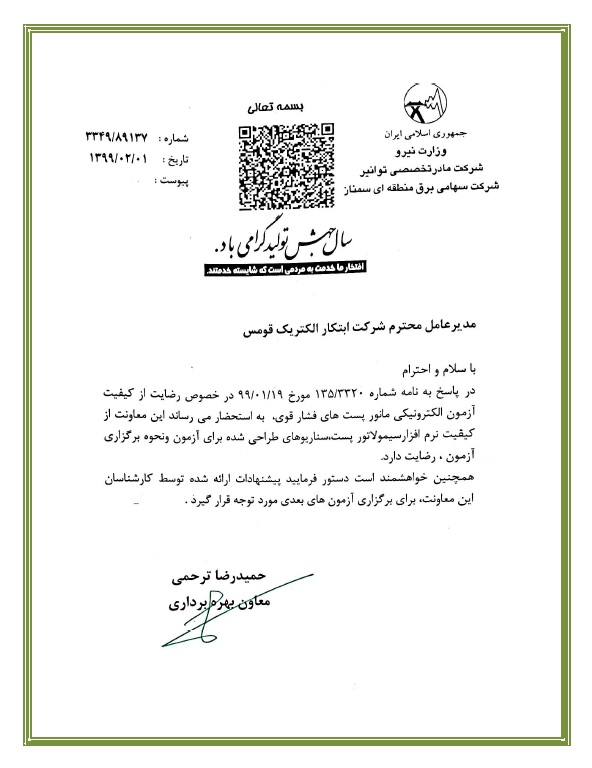 بسمه تعالی
جمهوری اسلامی ایران
وزارت نیرو
شرکت مادرتخصصی توانیر
شرکت سهامی برق منطقه ای سمنان
شماره : ۳۳۴۹/۸۹۱۳۷
تاریخ : ۱۳۹۹/۰۲/۰۱
پیوست :
سال جهش تولید گرامی باد.
افتخار ما خدمت به مردمی است که شایسته خدمتند.
مدیرعامل محترم شرکت ابتکار الکتریک قومس
با سلام و احترام
در پاسخ به نامه شماره ۱۳۵/۳۳۲۰ مورخ ۹۹/۰۱/۱۹ در خصوص رضایت از کیفیت
آزمون الکترونیکی مانور پست های فشار قوی، به استحضار می رساند این معاونت از
کیفیت نرم افزارسیمولاتور پست،سناریوهای طراحی شده برای آزمون ونحوه برگزاری
آزمون ، رضایت دارد.
همچنین خواهشمند است دستور فرمایید پیشنهادات ارائه شده توسط کارشناسان
این معاونت، برای برگزاری آزمون های بعدی مورد توجه قرار گیرد .
حمیدرضا ترحمی
معاون بهره برداری